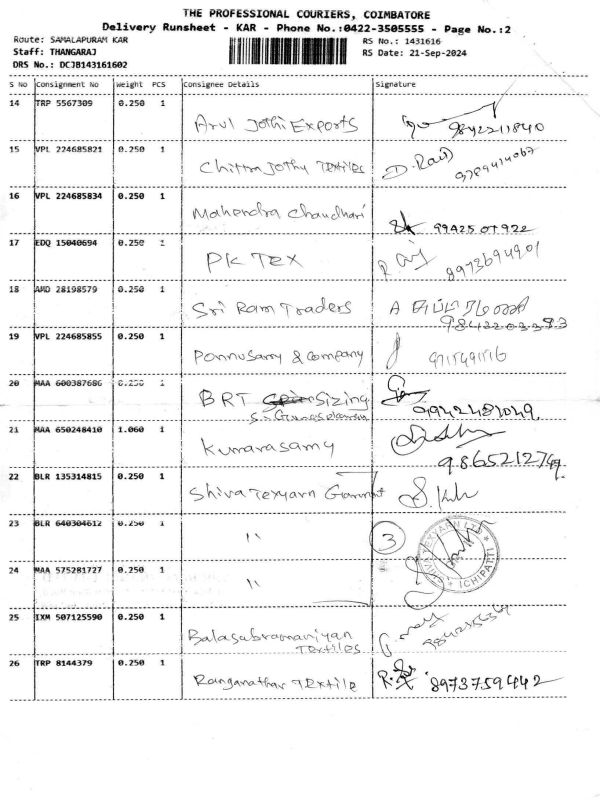 THE PROFESSIONAL COURIERS, COIMBATORE
Delivery Runsheet - KAR - Phone No.:0422-3505555 - Page No.:2
Route: SAMALAPURAM KAR RS No.: 1431616
Staff: THANGARAJ RS Date: 21-Sep-2024
DRS No.: DCJB143161602
S No Consignment No Weight PCS Consignee Details Signature
14 TRP 5567309 0.250 1 Arul Jothi Exports 9842211840
15 VPL 224685821 0.250 1 Chittrajothy Textiles D. Ravi
16 VPL 224685834 0.250 1 Mahendra Chaudhari 99425 07922
17 EDQ 15040694 0.250 1 PK Tex 8973694901
18 AMD 28198579 0.250 1 Sri Ram Traders A சுப்பிரமணி
9842203393
19 VPL 224685855 0.250 1 Ponnusamy & Company
20 MAA 600387686 0.250 1 BRT Sizing 9942481049
21 MAA 650248410 1.060 1 Kumarasamy
22 BLR 135314815 0.250 1 Shiva Texyarn Garment
23 BLR 640304612 0.250 1 " 3
24 MAA 575281727 0.250 1 "
25 IXM 507125590 0.250 1 Balasubramaniyan
Textiles
26 TRP 8144379 0.250 1 Ranganathar Textile 8973759442